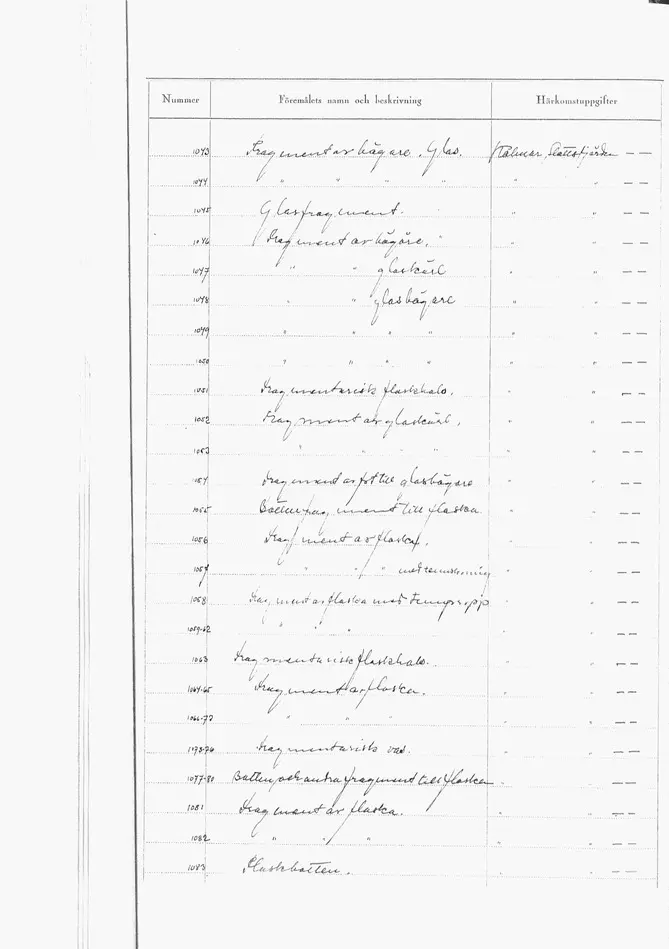 Nummer Föremålets namn och beskrivning Härkomstuppgifter
1043 Fragment av bägare. Glas. Kalmar, Slottsfjärden — —
1044 " " " " " " — —
1045 Glasfragment. " " — —
1046 Fragment av bägare, " " " — —
1047 " " glaskärl " " — —
1048 " " glasbägare " " — —
1049 " " " " " " — —
1050 " " " " " " — —
1051 Fragmentarisk flaskhals. " " — —
1052 Fragment av glaskärl, " " — —
1053 " " " " " " — —
1054 Fragment av fot till glasbägare " " — —
1055 Bottenfragment till flaska " " — —
1056 Fragment av flaska, " " — —
1057 " " " med " " — —
1058 Fragment av flaska med " " — —
1059-62 " " " " " — —
1063 Fragmentarisk flaskhals. " " — —
1064-65 Fragment av flaska. " " — —
1066-72 " " " " " — —
1073-76 Fragmentarisk vas. " " — —
1077-80 Botten och andra fragment till flaskor. " — —
1081 Fragment av flaska. " " — —
1082 " " " " " — —
1083 Flaskbotten. " " — —